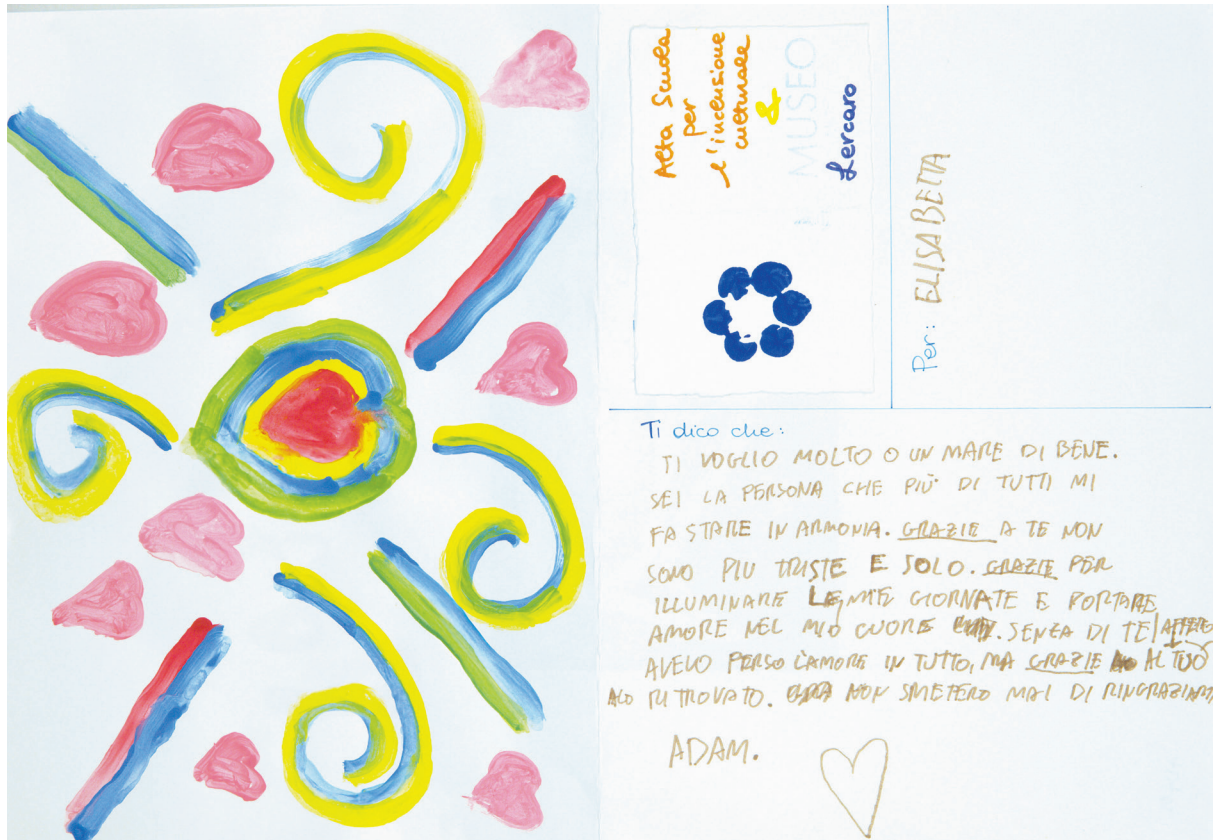 Alta Scuola
per
l'inclusione
culturale
&
MUSEO
Lercaro
Per: ELISABETTA
Ti dico che:
TI VOGLIO MOLTO O UN MARE DI BENE.
SEI LA PERSONA CHE PIÙ DI TUTTI MI
FA STARE IN ARMONIA. GRAZIE A TE NON
SONO PIU TRISTE E SOLO. GRAZIE PER
ILLUMINARE LE MIE GIORNATE E PORTARE
AMORE NEL MIO CUORE. SENZA DI TE
AVEVO PERSO L'AMORE IN TUTTO, MA GRAZIE AL TUO
RITROVATO. NON SMETERO MAI DI RINGRAZIARTI
ADAM.